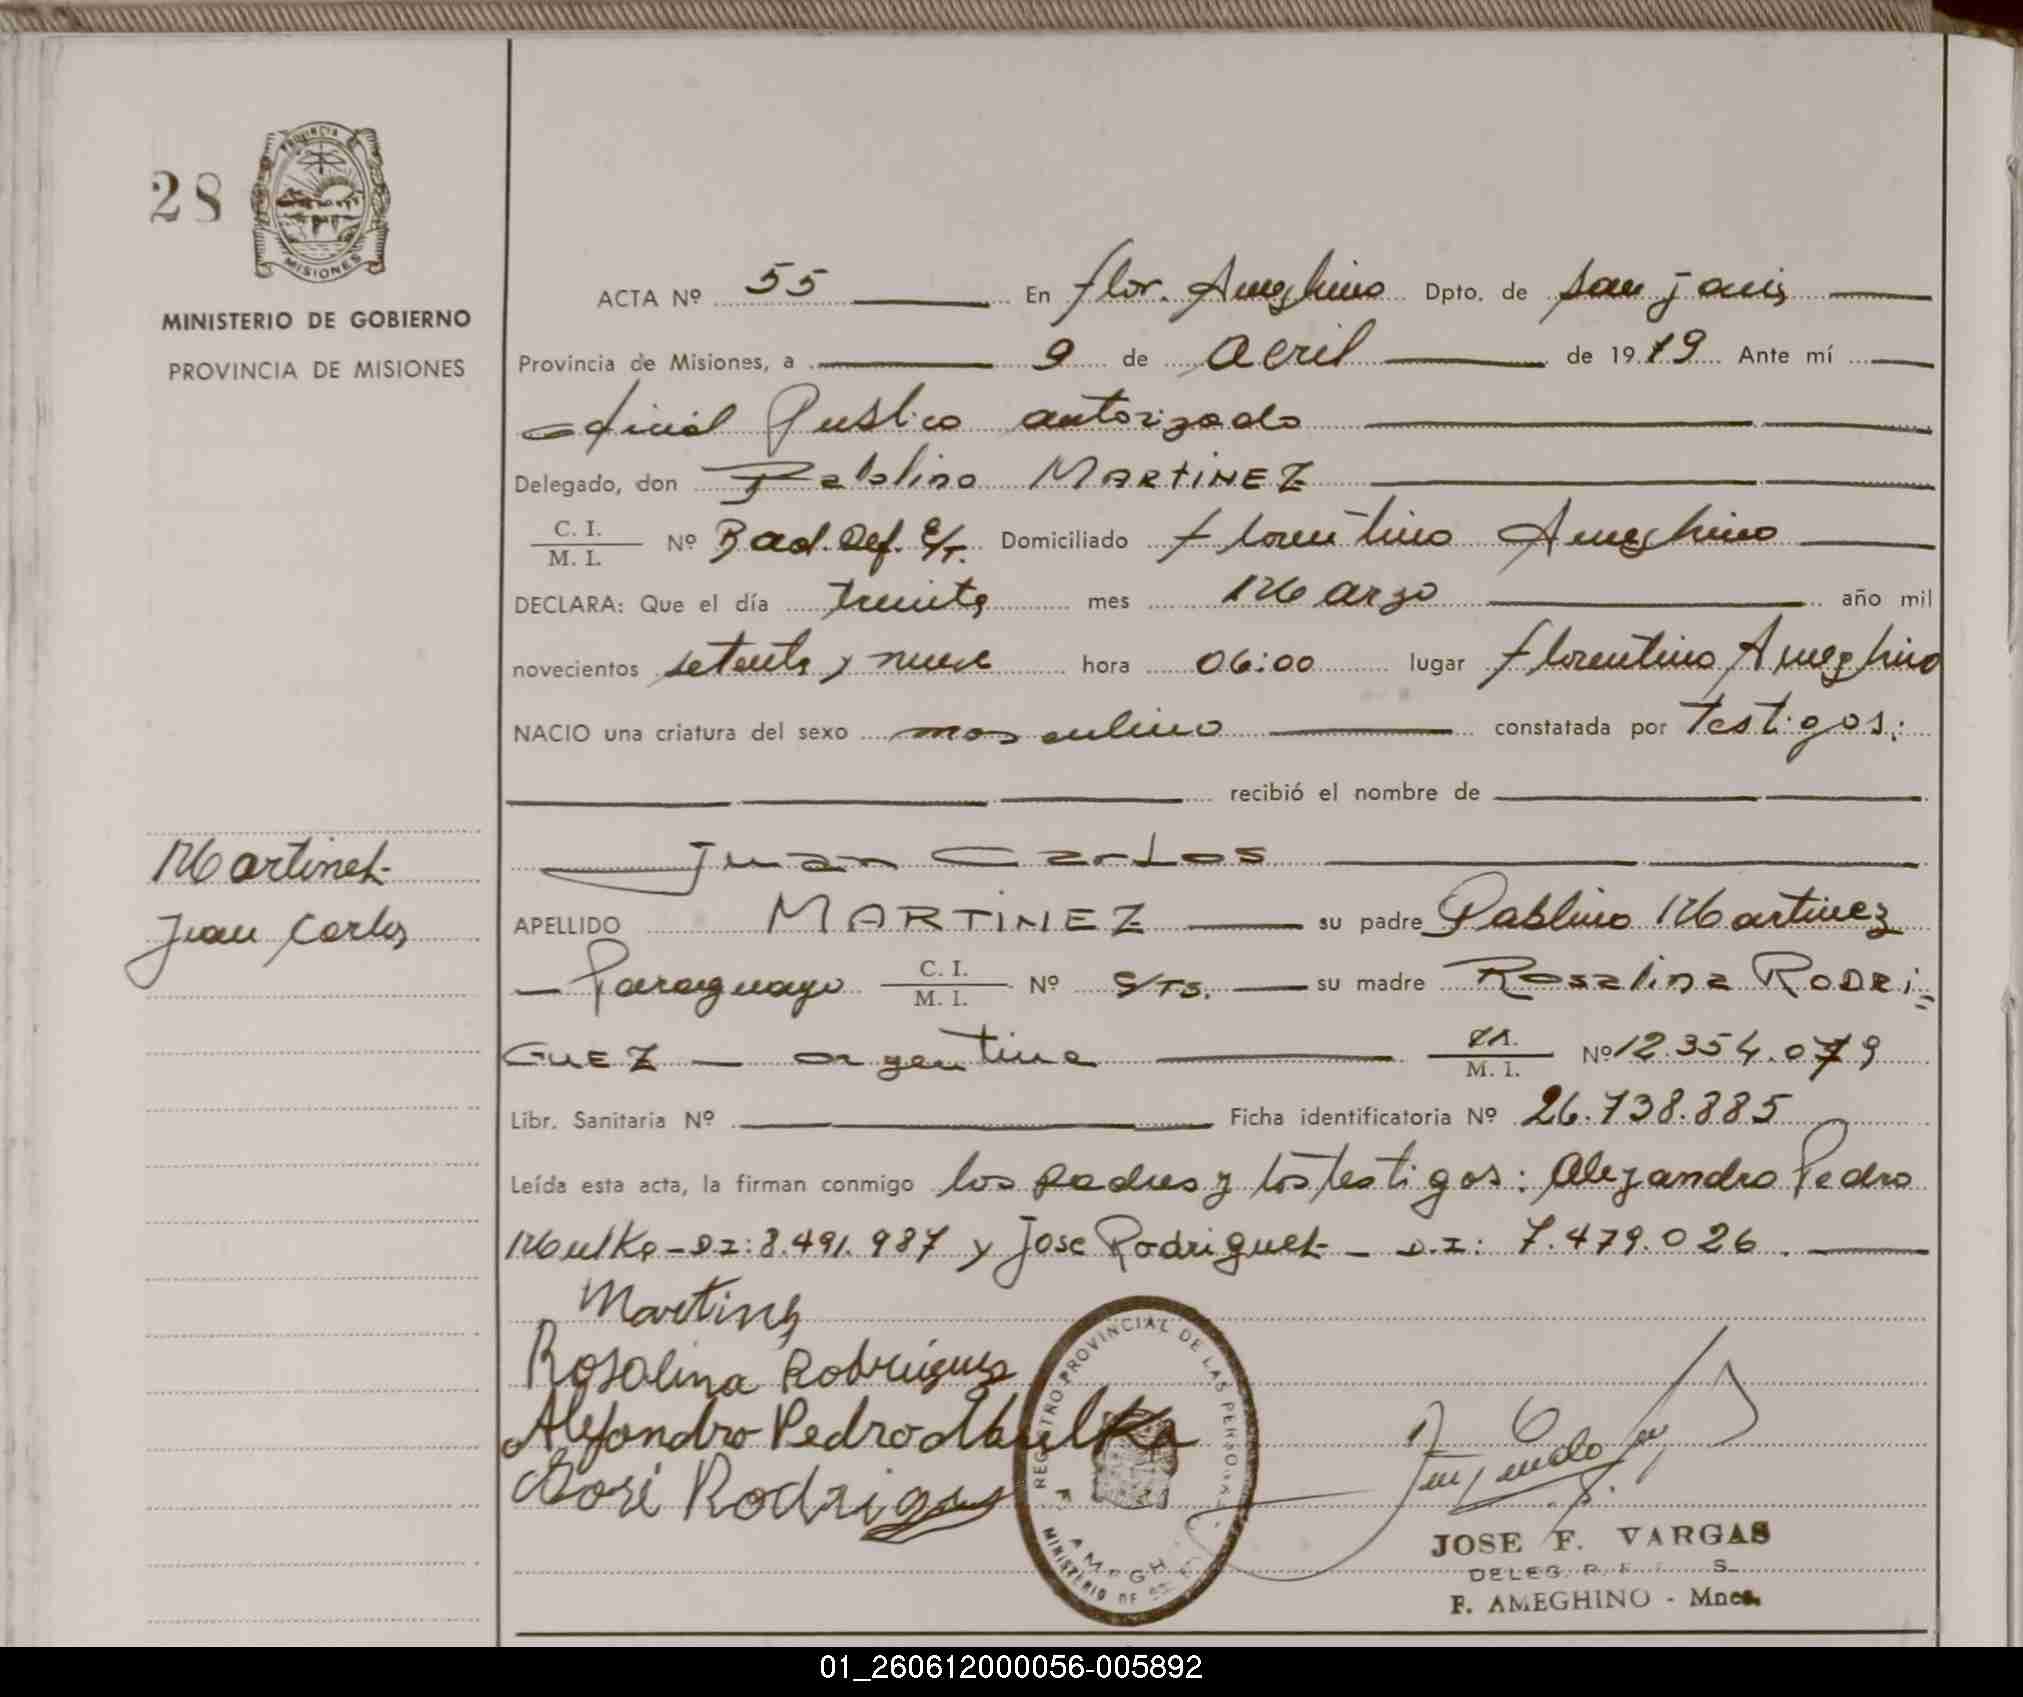 28
PROVINCIA
MISIONES
MINISTERIO DE GOBIERNO
PROVINCIA DE MISIONES
ACTA Nº 55 En Flor. Ameghino Dpto. de San Javier
Provincia de Misiones, a 9 de Abril de 1979 Ante mí
oficial Publico autorizado
Delegado, don Pablino MARTINEZ
C. I.
M. I. Nº Domiciliado Florentino Ameghino
DECLARA: Que el día treinta mes Marzo año mil
novecientos setenta y nueve hora 06:00 lugar Florentino Ameghino
NACIO una criatura del sexo masculino constatada por Testigos:
recibió el nombre de
Juan Carlos
Martinez
Juan Carlos
APELLIDO MARTINEZ su padre Pablino Martinez
Paraguayo C. I.
M. I. Nº S/TS. su madre Rosalina RODRI=
GUEZ argentina M. I. Nº 12.354.079
Libr. Sanitaria Nº Ficha identificatoria Nº 26.738.885
Leída esta acta, la firman conmigo los padres y los testigos: Alejandro Pedro
Maulka - D.I: 8.491.987 y Jose Rodriguez - D.I: 7.479.026.
Martinez
Rosalina Rodriguez
Alejandro Pedro Maulka
José Rodriguez
REGISTRO PROVINCIAL DE LAS PERSONAS
F. AMEGHINO
MINISTERIO DE
JOSE F. VARGAS
DELEG. R.
F. AMEGHINO - Mnes.
01_260612000056-005892